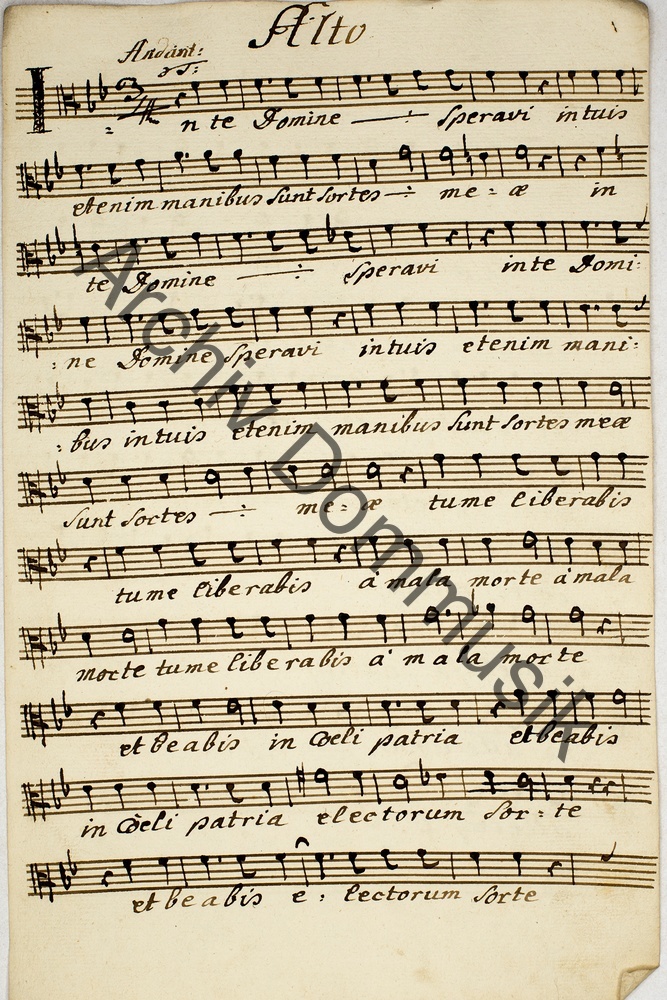 Alto
Andant:
In te Domine speravi in tuis
etenim manibus sunt sortes me = æ in
te Domine speravi in te Domi:
: ne Domine speravi in tuis etenim mani:
: bus in tuis etenim manibus sunt sortes meæ
sunt sortes me = æ tu me liberabis
tu me liberabis à mala morte à mala
morte tu me liberabis à mala morte
et beabis in Cœli patria et beabis
in Cœli patria electorum sor = te
et beabis e : lectorum sorte
Archiv Dommusik